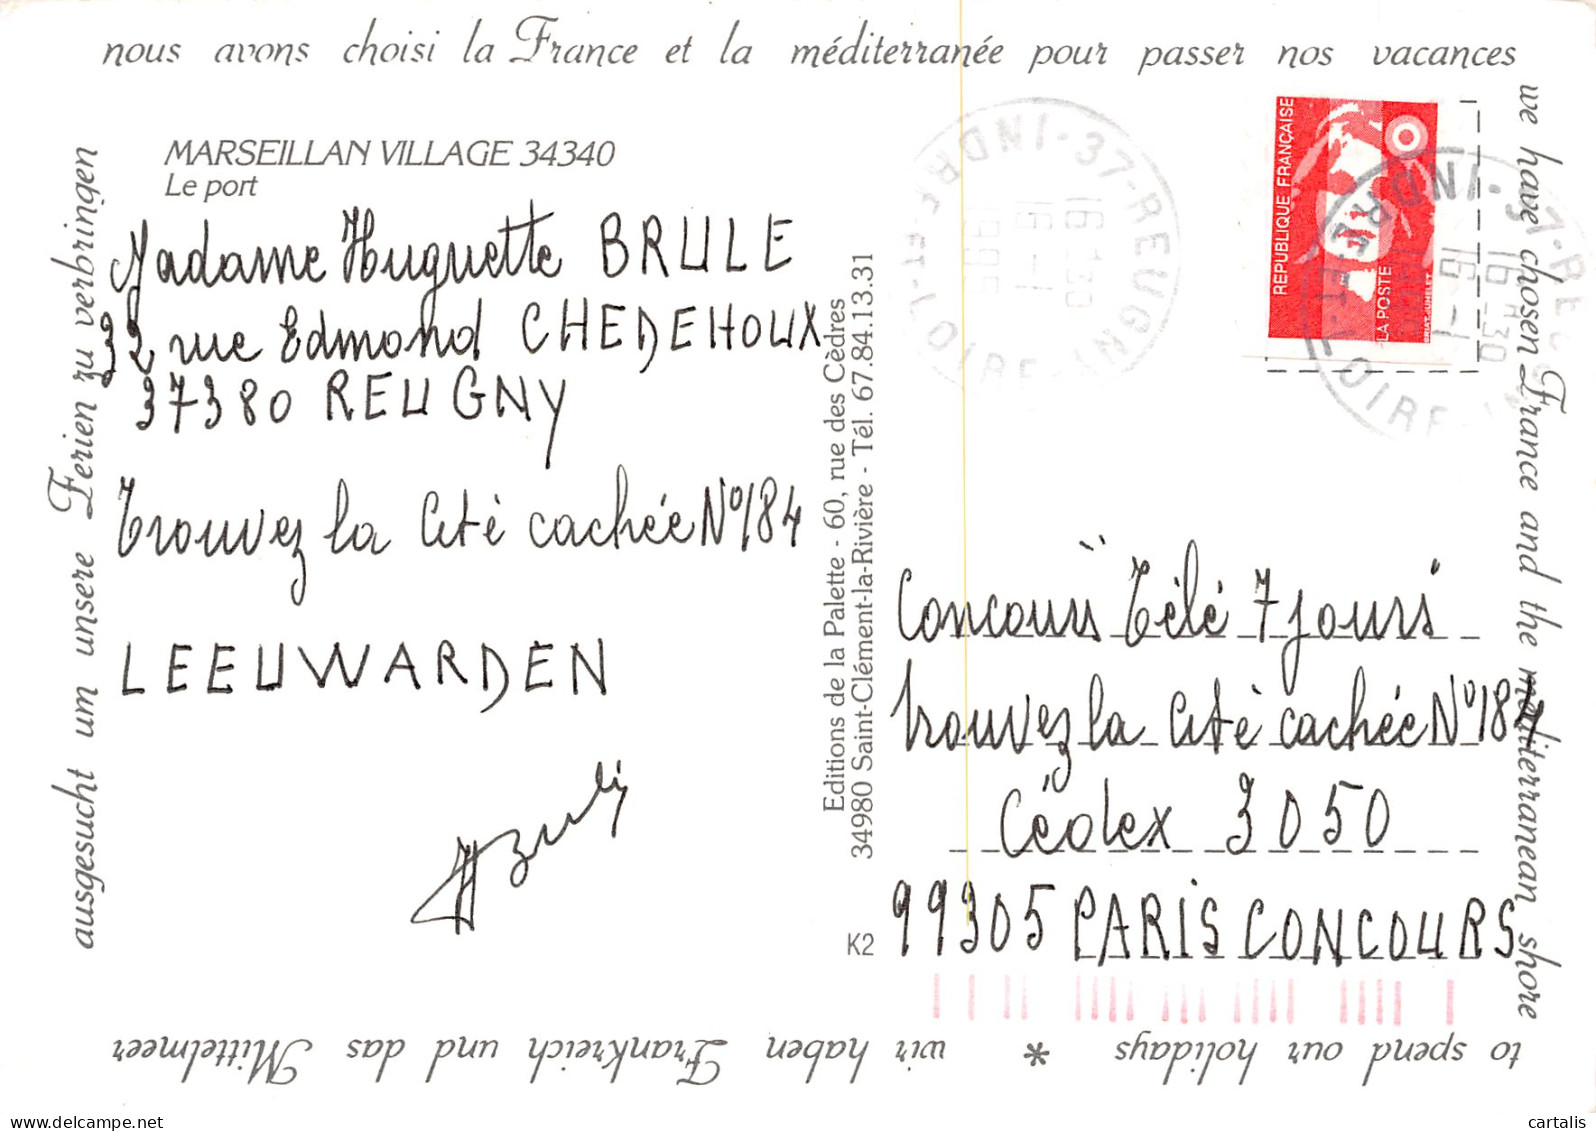 nous avons choisi la France et la méditerranée pour passer nos vacances
we have chosen France and the méditerranean shore
to spend our holidays * wir haben Frankreich und das Mittelmeer
ausgesucht um unsere Ferien zu verbringen
MARSEILLAN VILLAGE 34340
Le port
Madame Huguette BRULE
32 rue Edmond CHEDEHOUX
37380 REUGNY
Trouvez la Cité cachée N°184
LEEUWARDEN
Editions de la Palette - 60, rue des Cèdres
34980 Saint-Clément-la-Rivière - Tél. 67.84.13.31
K2
37-REUGNY
INDRE-ET-LOIRE
16 H 30
16 - 1
REPUBLIQUE FRANÇAISE
LA POSTE
37-REUGNY
INDRE-ET-LOIRE
16 H 30
16 - 1
Concours "Télé 7 jours"
trouvez la Cité cachée N°184
Cédex 3050
99305 PARIS CONCOURS
cartalis
delcampe.net